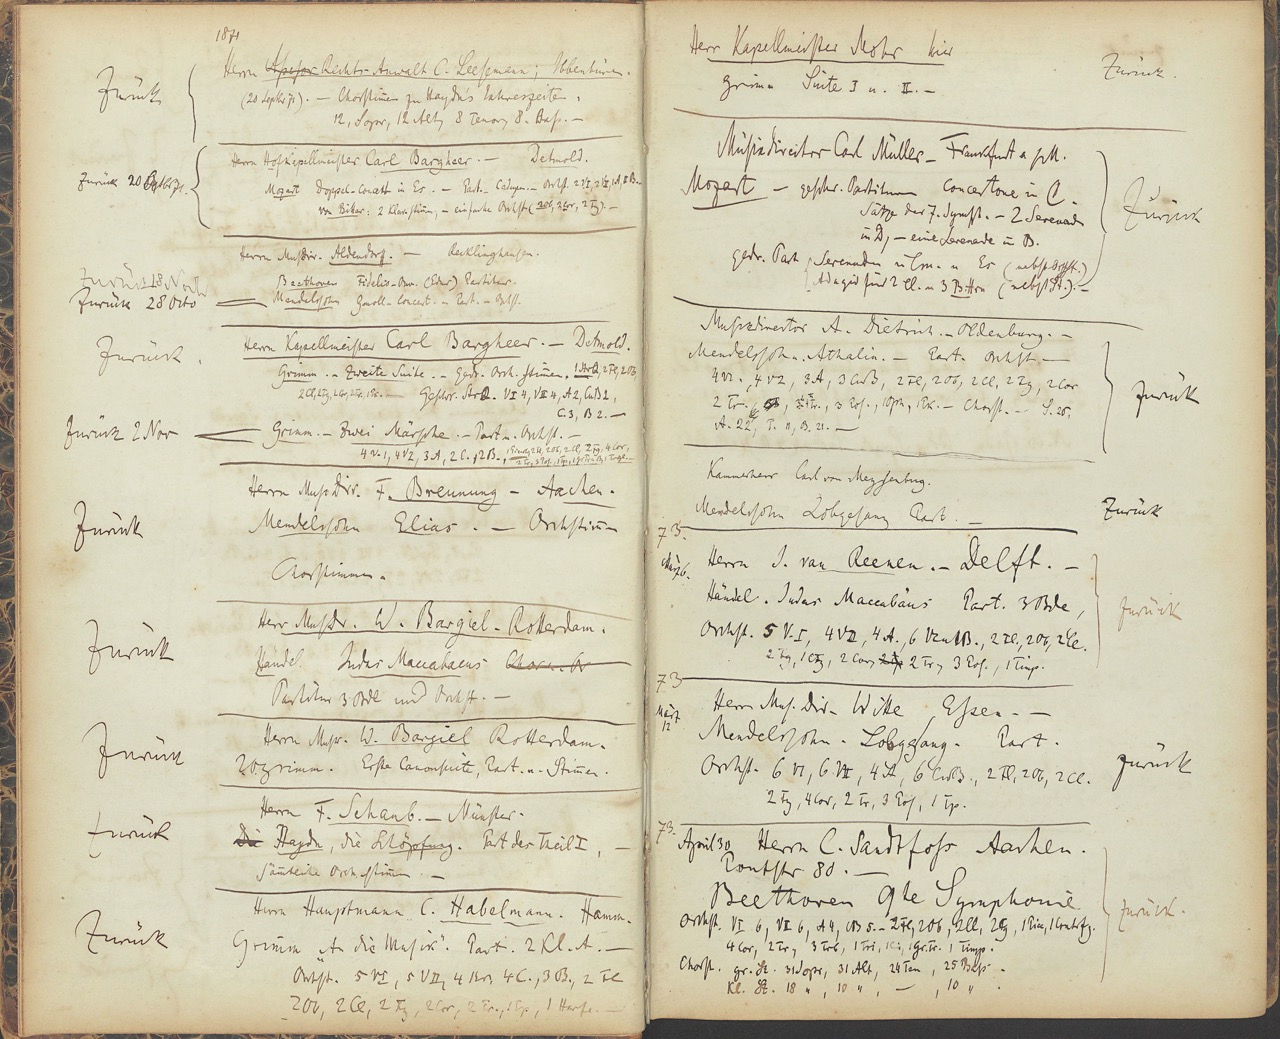 1871
Zurück
Herrn Rechts-Anwalt C. Leesemann; Ibbenbüren.
(20 Septbr 71). — Chorstimmen zu Haydn's Jahreszeiten.
12, Sopr, 12 Alt, 8 Tenor, 8. Bass. —
Herrn Hofkapellmeister Carl Bargheer. — Detmold.
Zurück 20
Mozart Doppel-Concert in Es. — Part. — Orchst. 2 VI, 2 VII, 1A, 2 B.
2 Klavierstimm, — einfache Orchst (2 Ob, 2 Cor, 2 Fg). —
Herrn Musdir. Aldendorf. — Recklinghausen.
Zurück 18 Novbr
Beethoven Fidelio-Ouv. (Edur) Partitur.
Zurück 28 Octo
Mendelssohn Gmoll. Concert. — Part. — Orchst.
Herrn Kapellmeister Carl Bargheer. — Detmold.
Zurück.
Grimm. — Zweite Suite. — gedr. Orch. Stimmen. 2 Fl, 2 Ob,
2 Cl, 2 Fg, 2 Cor, 2 Tr. — Geschr. StrQ. VI 4, VII 4, A 2, CuB 2,
C. 3, B 2. —
Zurück 2 Nov
Grimm. — Zwei Märsche. — Part u. Orchst. —
4 V. 1, 4 V 2, 3 A, 2 C., 2 B., 2 Fl, 2 Ob, 2 Cl, 2 Fg, 4 Cor,
2 Tr, 3 Pos,
Herrn MusDir. F. Breunung — Aachen.
Zurück
Mendelssohn Elias. — Orchstimm
Chorstimmen.
Herr MusDr. W. Bargiel. Rotterdam.
Zurück
Händel Judas Maccabaeus Chorn. Or
Partitur 3 Bde und Orchst. —
Herrn Musr. W. Bargiel Rotterdam.
Zurück
Grimm. Erste Canonsuite, Part. u. Stimmen.
Herrn F. Schaub. — Münster.
Zurück
Die Haydn, die Schöpfung. Part der Theil I, —
Sämtliche Orchestimm. —
Herrn Hauptmann C. Habelmann. Hamm.
Zurück
Grimm „An die Musik". Part. 2 Kl. A. —
Orchst. 5 VI, 5 VII, 4 Br, 4 C., 3 B., 2 Fl
2 Ob, 2 Cl, 2 Fg, 2 Cor, 2 Tr, 1 Tp, 1 Harfe. —
Herr Kapellmeister Mohr hier
Zurück.
Grimm Suite 3 u. II. —
Musikdirector Carl Müller — Frankfurt a/M.
Mozart — geschr. Partituren Concertone in C.
Zurück
Sätze der 7. Symph. — 2 Serenad
in D, — eine Serenade in B.
gedr. Part Serenaden in Cm. u Es (nebst Orchst.)
Adagio für 2 Cl. u 3 B.Hrn (nebst St.). —
Musikdirector A. Dietrich. — Oldenburg. —
Mendelssohn. Athalia. — Part. Orchst. —
4 V1., 4 V2, 3 A, 3 CuB, 2 Fl, 2 Ob, 2 Cl, 2 Fg, 2 Cor
Zurück
2 Tr., 3 Pos., 1 Oph, 1 Pk. — Chorst. — S. 25,
A. 22, T. 11, B. 21. —
Kammerherr Carl von Meysenbug.
Mendelssohn Lobgesang Part. —
Zurück
73.
März 6.
Herrn J. van Reenen. — Delft. —
Händel. Judas Maccabäus Part. 3 Bde,
Zurück
Orchst. 5 V. I, 4 VII, 4 A., 6 Vc u B., 2 Fl, 2 Ob, 2 Cl.
2 Fg, 1 Cfg, 2 Cor, 2 Tr, 3 Pos., 1 Timp.
73
März 12
Herrn Mus. Dir. Witte, Essen. —
Mendelssohn. Lobgesang. Part.
Zurück
Orchst. 6 VI, 6 VII, 4 A, 6 CuB., 2 Fl, 2 Ob, 2 Cl.
2 Fg, 4 Cor, 2 Tr, 3 Pos, 1 Tp.
73.
April 30 Herrn C. Sandtfoss Aachen.
Pontstr 80. —
Beethoven 9te Symphonie
Zurück.
Orchst. VI 6, VII 6, A 4, CB 5. — 2 Fl, 2 Ob, 2 Cl, 2 Fg, 1 Picc, 1 Contrfg.
4 Cor, 2 Tr, 3 Trb, 1 Tri, 1 Ci, 1 Gr. Tr. 1 Timp.
Chorst. gr. St. 31 Sopr, 31 Alt, 24 Ten, 25 Bass.
Kl. St. 18 „, 10 „, —, 10 „.